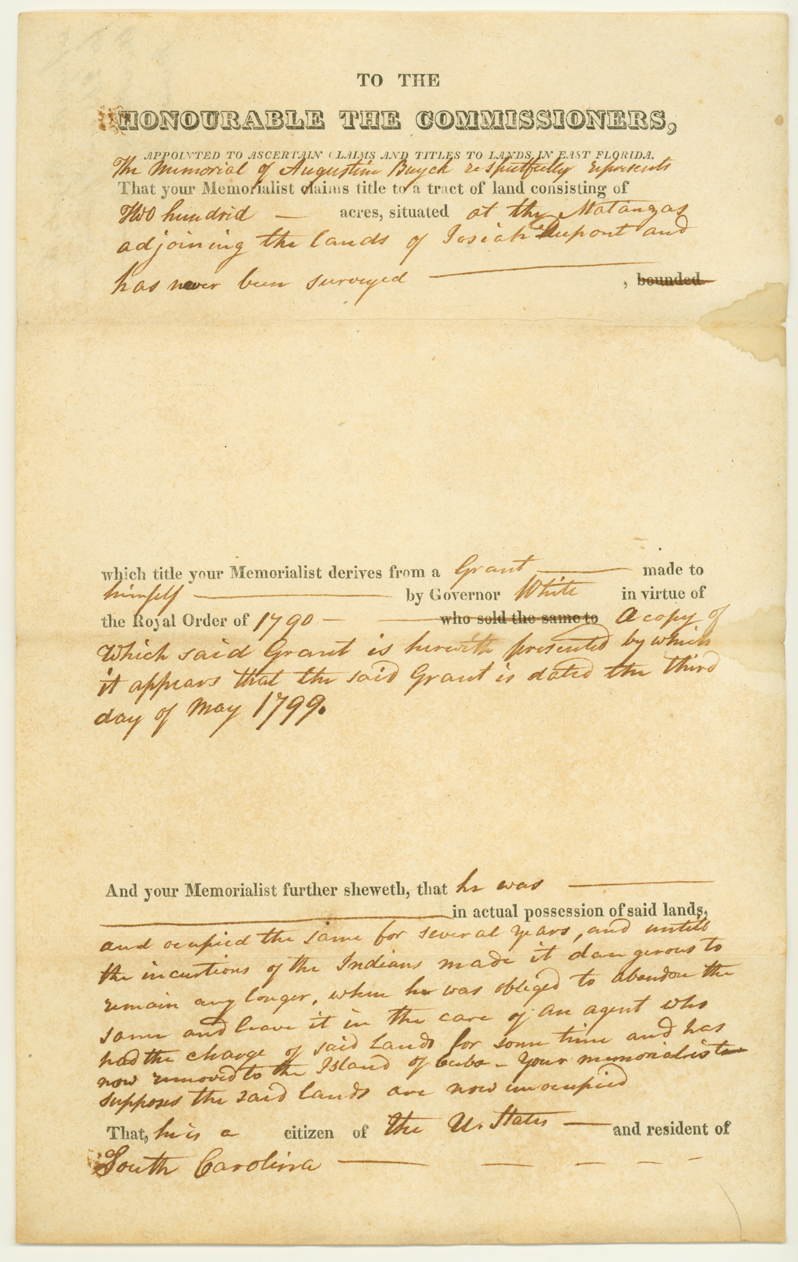 TO THE
HONOURABLE THE COMMISSIONERS,
APPOINTED TO ASCERTAIN CLAIMS AND TITLES TO LANDS IN EAST FLORIDA.
The Memorial of Augustin Buyck respectfully represents
That your Memorialist claims title to a tract of land consisting of
Two hundrid — acres, situated at the Matanzas
adjoining the lands of Josiah Dupont and
has never been surveyed — , bounded
which title your Memorialist derives from a Grant — made to
himself — by Governor White in virtue of
the Royal Order of 1790 — who sold the same to A copy of
which said Grant is herewith presented by which
it appears that the said Grant is dated the third
day of May 1799.
And your Memorialist further sheweth, that he was —
in actual possession of said lands,
and ocupied the same for several years, and untill
the incurtions of the Indians made it dangerous to
remain any longer, when he was obleged to abandon the
same and leave it in the care of an agent who
had the charge of said lands for some time and has
now removed to the Island of Cuba – Your memorialist
supposes the said lands are now unocupied
That, he is a citizen of the U. States — and resident of
South Carolina — — — — —